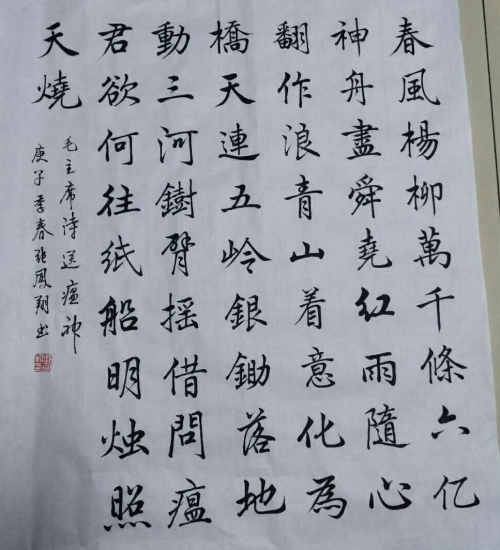 春風楊柳萬千條六亿
神舟盡舜堯红雨隨心
翻作浪青山着意化為
橋天連五岭銀鋤落地
動三河鐵臂摇借問瘟
君欲何往紙船明烛照
天燒
毛主席詩送瘟神
庚子季春張鳳翔书